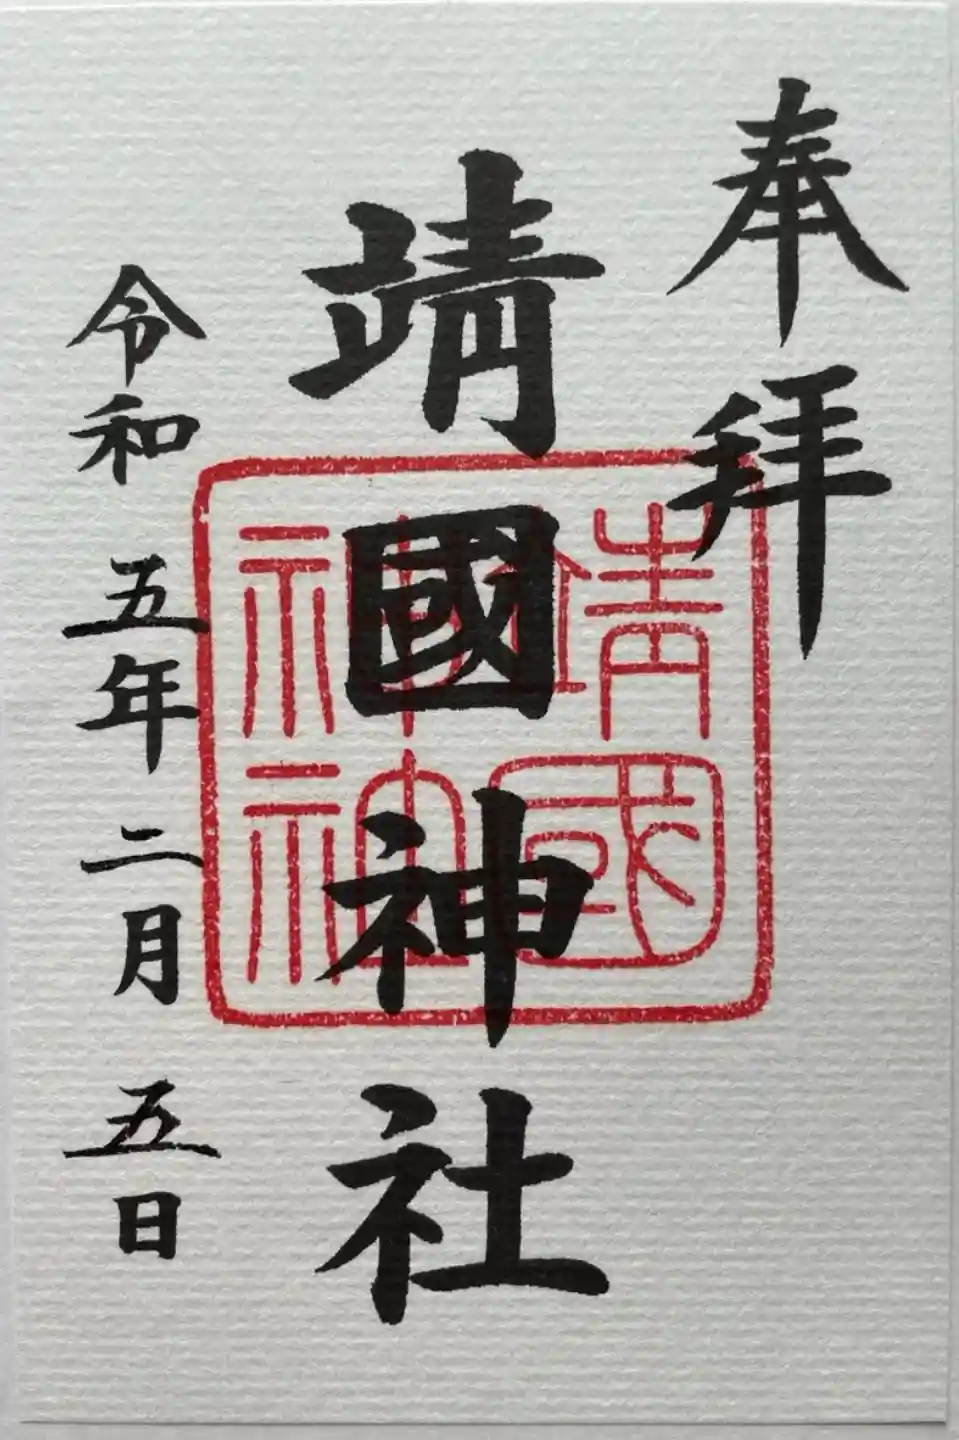 奉拝
靖國神社
靖國神社
令和五年二月五日